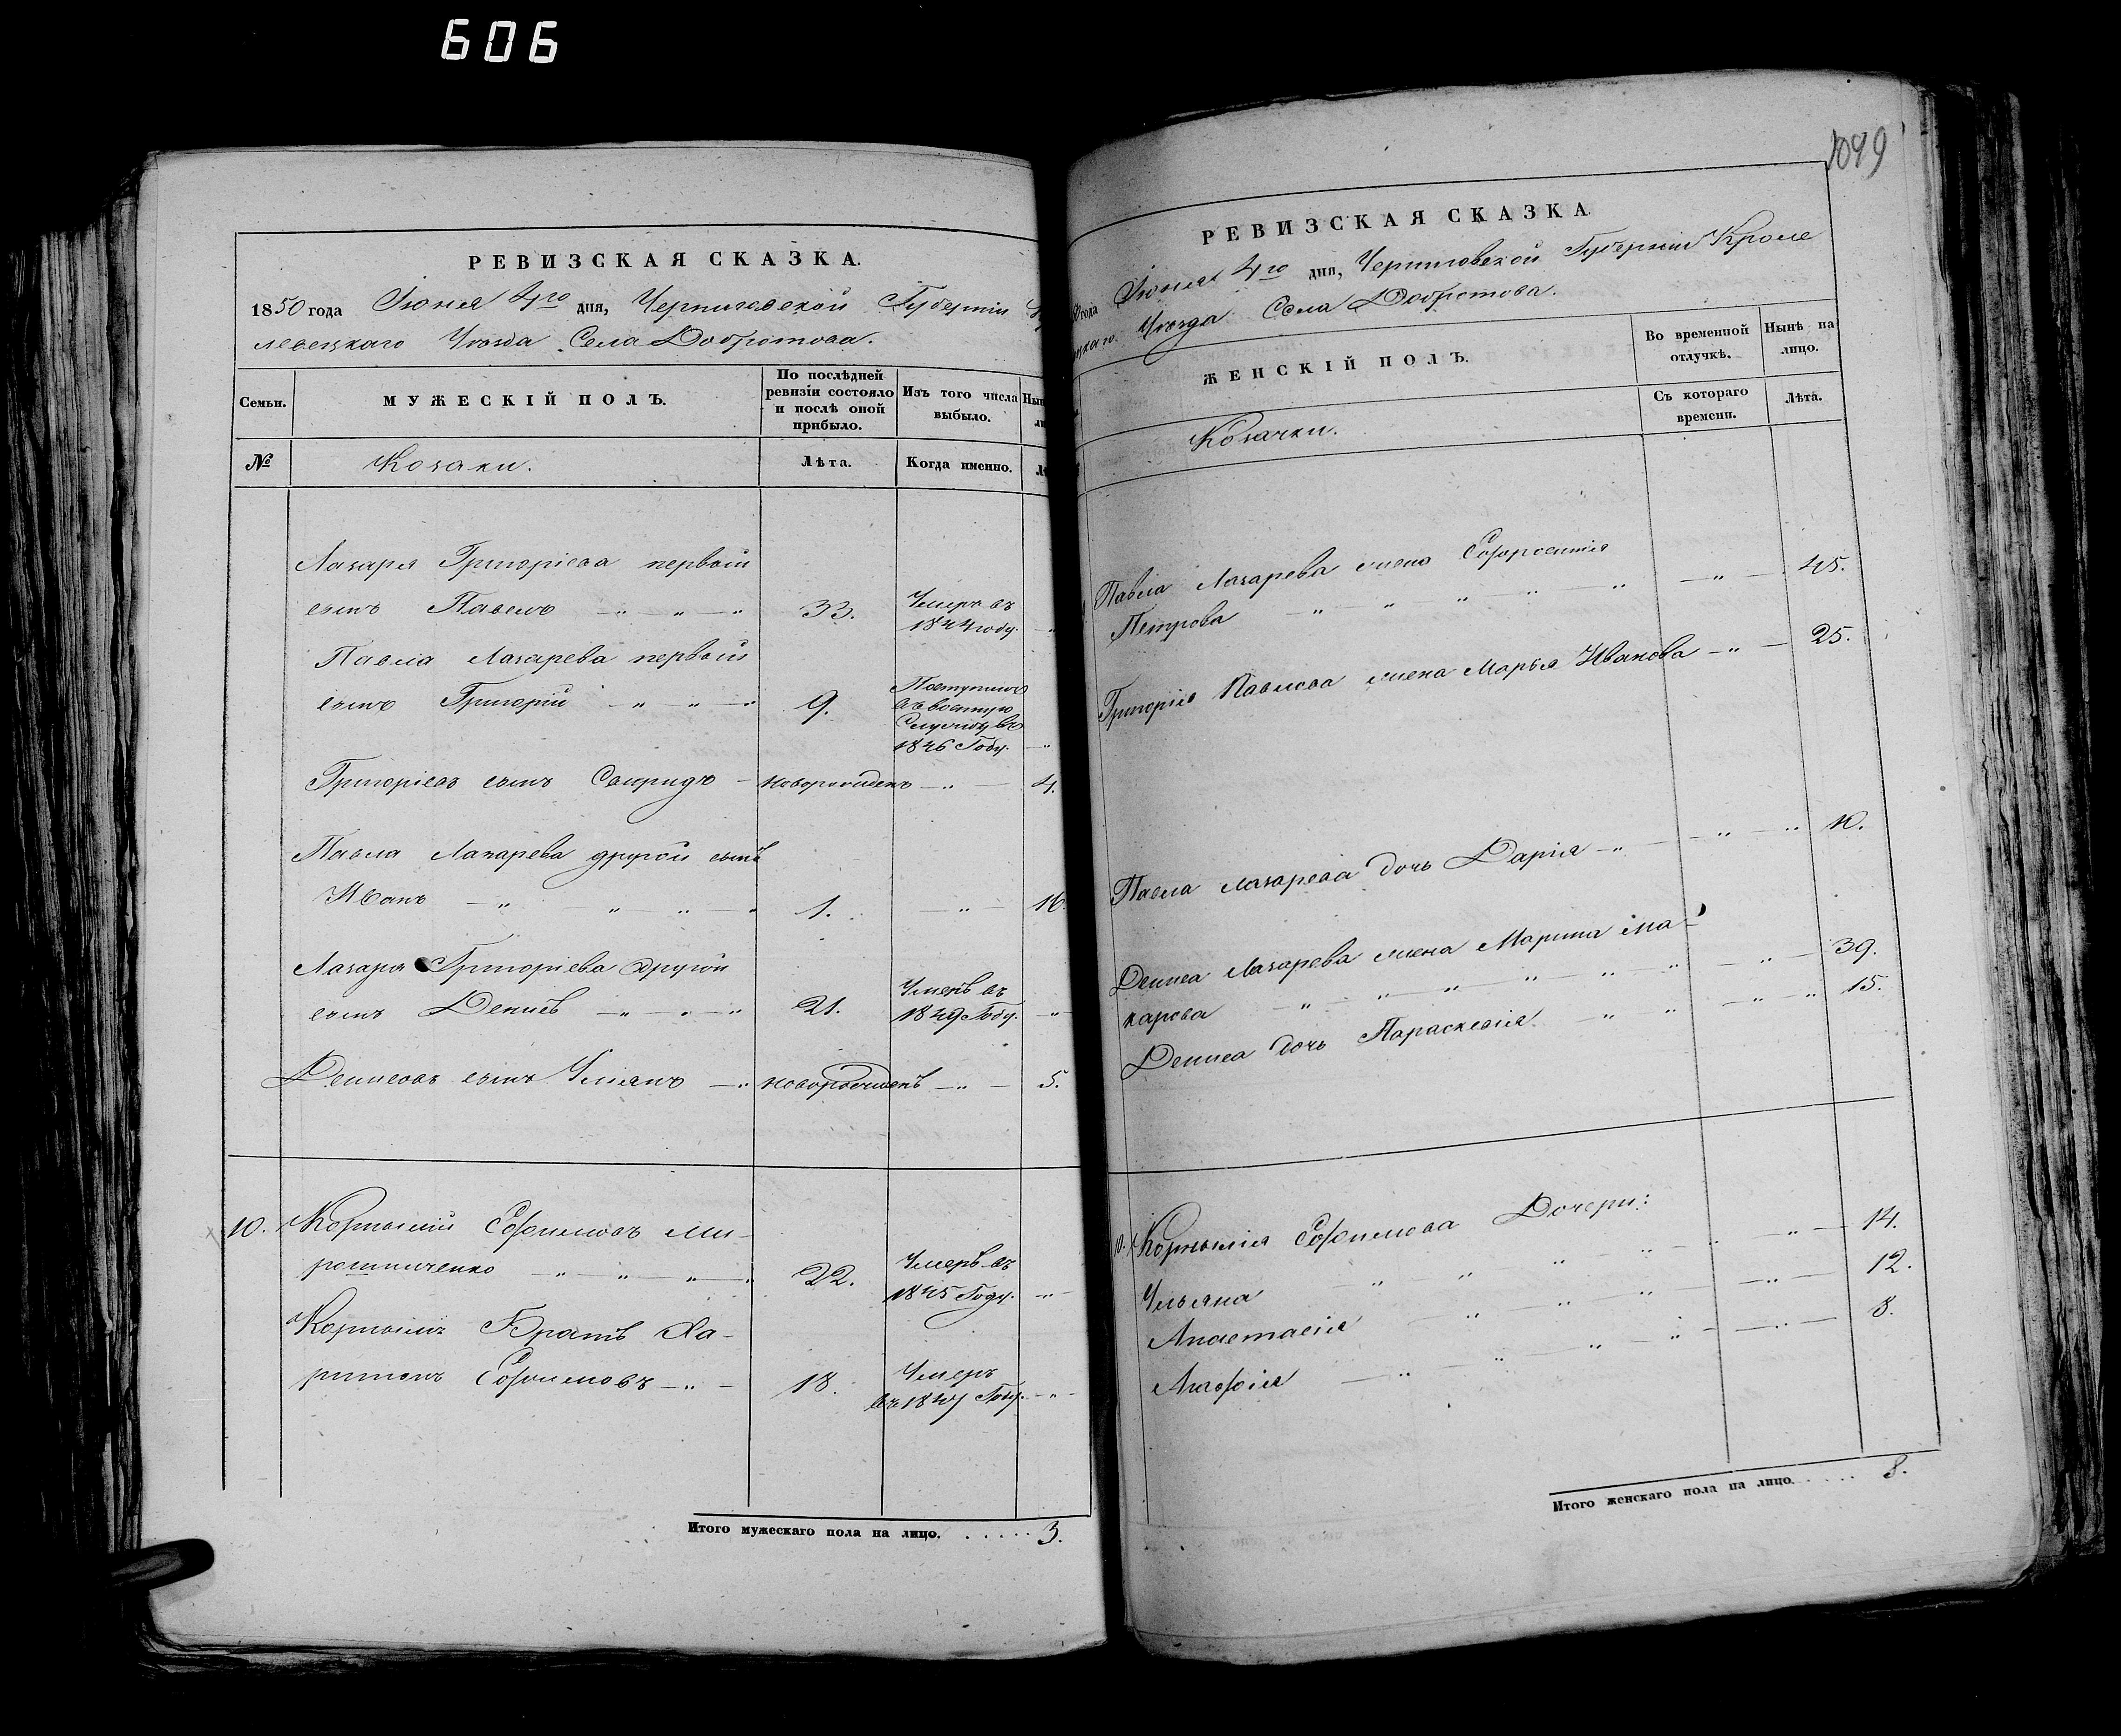 606
РЕВИЗСКАЯ СКАЗКА.
1850 года Іюня 4го дня, Черниговской Губерніи
левецкаго Уѣзда Села Добротова.
Семьи.
МУЖЕСКІЙ ПОЛЪ.
По послѣдней
ревизіи состояло
и послѣ оной
прибыло.
Изъ того числа
выбыло.
№
Козаки.
Лѣта.
Когда именно.
Лазаря Григоріева первый
сынъ Павелъ 33. Умеръ въ
1844 году.
Павла Лазарева первый
сынъ Григорій 9. Поступилъ
въ военную
Службу въ
1846 Году.
Григоріевъ сынъ Свиридъ новорожденъ 4.
Павла Лазарева другой сынъ
Иванъ 1. 16.
Лазаря Григоріева другой
сынъ Денисъ 21. Умеръ въ
1849 Году.
Денисовъ сынъ Ульянъ новорожденъ 5.
10. Корнилій Ефимовъ Ми-
рошниченко 22. Умеръ въ
1845 Году.
Корнилія Братъ Ха-
ритонъ Ефимовъ 18. Умеръ
въ 1847 Году.
Итого мужескаго пола на лицо. 3.
1099
РЕВИЗСКАЯ СКАЗКА.
года Іюня 4го дня, Черниговской Губерніи Кроле
цкаго Уѣзда Села Добротова.
ЖЕНСКІЙ ПОЛЪ.
Во временной
отлучкѣ.
Нынѣ на
лицо.
Съ котораго
времени.
Лѣта.
Козачки.
Павла Лазарева жена Ефросинія
Петрова 45.
Григорія Павлова жена Марья Иванова 25.
Павла Лазарева дочь Дарія 10.
Дениса Лазарева жена Марина Ма-
карова 39.
Дениса дочь Параскевія 15.
10. Корнилія Ефимова Дочери:
Ульяна 14.
Анастасія 12.
Агафія 8.
Итого женскаго пола на лицо. 8.